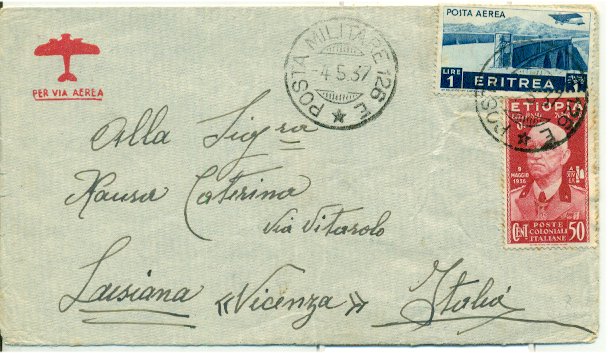 PER VIA AEREA
POSTA MILITARE 126 E
-4.5.37
POSTA AEREA
LIRE 1 ERITREA
ETIOPIA
9 MAGGIO 1936
XIV E.F.
POSTE COLONIALI ITALIANE
CENT 50
Alla Sig.ra
Caterina
Via Vitarolo
Lusiana «Vicenza» Italia